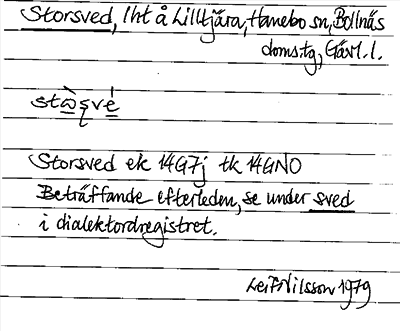 Storsved, lht å Lilltjära, Hanebo sn, Bollnäs
doms.tg, Gävl. l.
Storsved ek 14G7j tk 14GNO
Beträffande efterleden, se under sved
i dialektordregistret.
Leif Nilsson 1979